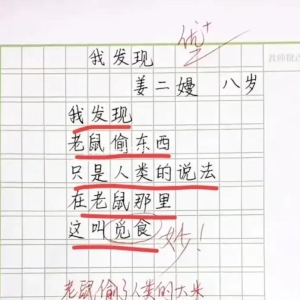 我发现
优+
姜二嫚 八岁
我发现
老鼠偷东西
只是人类的说法
在老鼠那里
这叫觅食
妙！
老鼠偷了人类的大米